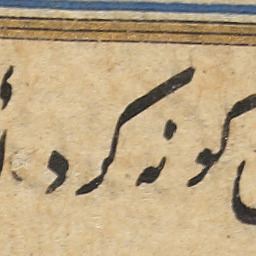 کونه کرد